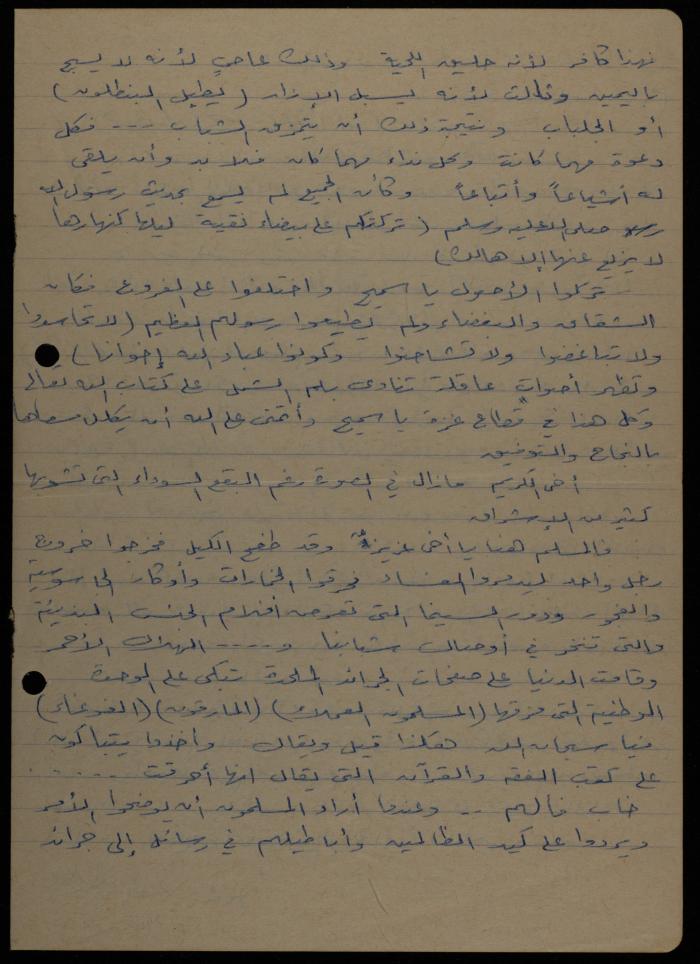 فهذا كافر لأنه حليق اللحية وذلك عاصٍ لأنه لا يسبح
باليمين وثالث لأنه يسبل الإزار (يطيل البنطلون)
أو الجلباب ونتيجة ذلك أن يتمزق الشباب --- فكل
دعوة مهما كانت وكل نداء مهما كان فلا بد وأن يلقى
له أشياعاً وأتباعاً وكأن الجميع لم يسمع بحديث رسول الله
صلى الله عليه وسلم (تركتكم على بيضاء نقية ليلها كنهارها
لا يزيغ عنها إلا هالك)
تركوا الأصول يا سميح واختلفوا على الفروع فكان
الشقاق والبغضاء ولم يطيعوا رسولهم العظيم (لا تحاسدوا
ولا تباغضوا ولا تشاحنوا وكونوا عباد الله إخوانا)
وتظهر أصوات عاقلة تنادي بلم الشمل على كتاب الله تعالى
وكل هذا في قطاع غزة يا سميح وأتمنى على الله أن يكلل مسعاها
بالنجاح والتوفيق
أخي الكريم مازال في الصورة رغم البقع السوداء التي تشوبها
كثير من الإشراق
فالمسلم هنا يا أخي عزيز وقد طفح الكيل فخرجوا خروج
رجل واحد ليدمروا الفساد فحرقوا الخمارات وأوكار الجاسوسية
والفجور ودور السينما التي تعرض أفلام الجنس البذيئة
والتي تنخر في أوصال شبابنا و---- الهلال الأحمر
وقامت الدنيا على صفحات الجرائد الملحدة تبكي على الوحدة
الوطنية التي مزقها (المسلمون العملاء) (المارقون) (الغوغاء)
فيا سبحان الله هكذا قيل ويقال وأخذوا يتباكون
على كتب الفقه والقرآن التي يقال انها أحرقت .....
خاب فألهم -- وعندما أراد المسلمون أن يوضحوا الأمر
ويردوا على كيد الظالمين وأباطيلهم في رسائل إلى جرائد